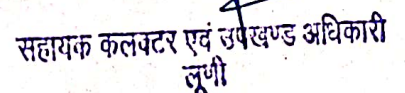 सहायक कलक्टर एवं उपखण्ड अधिकारी
लूणी